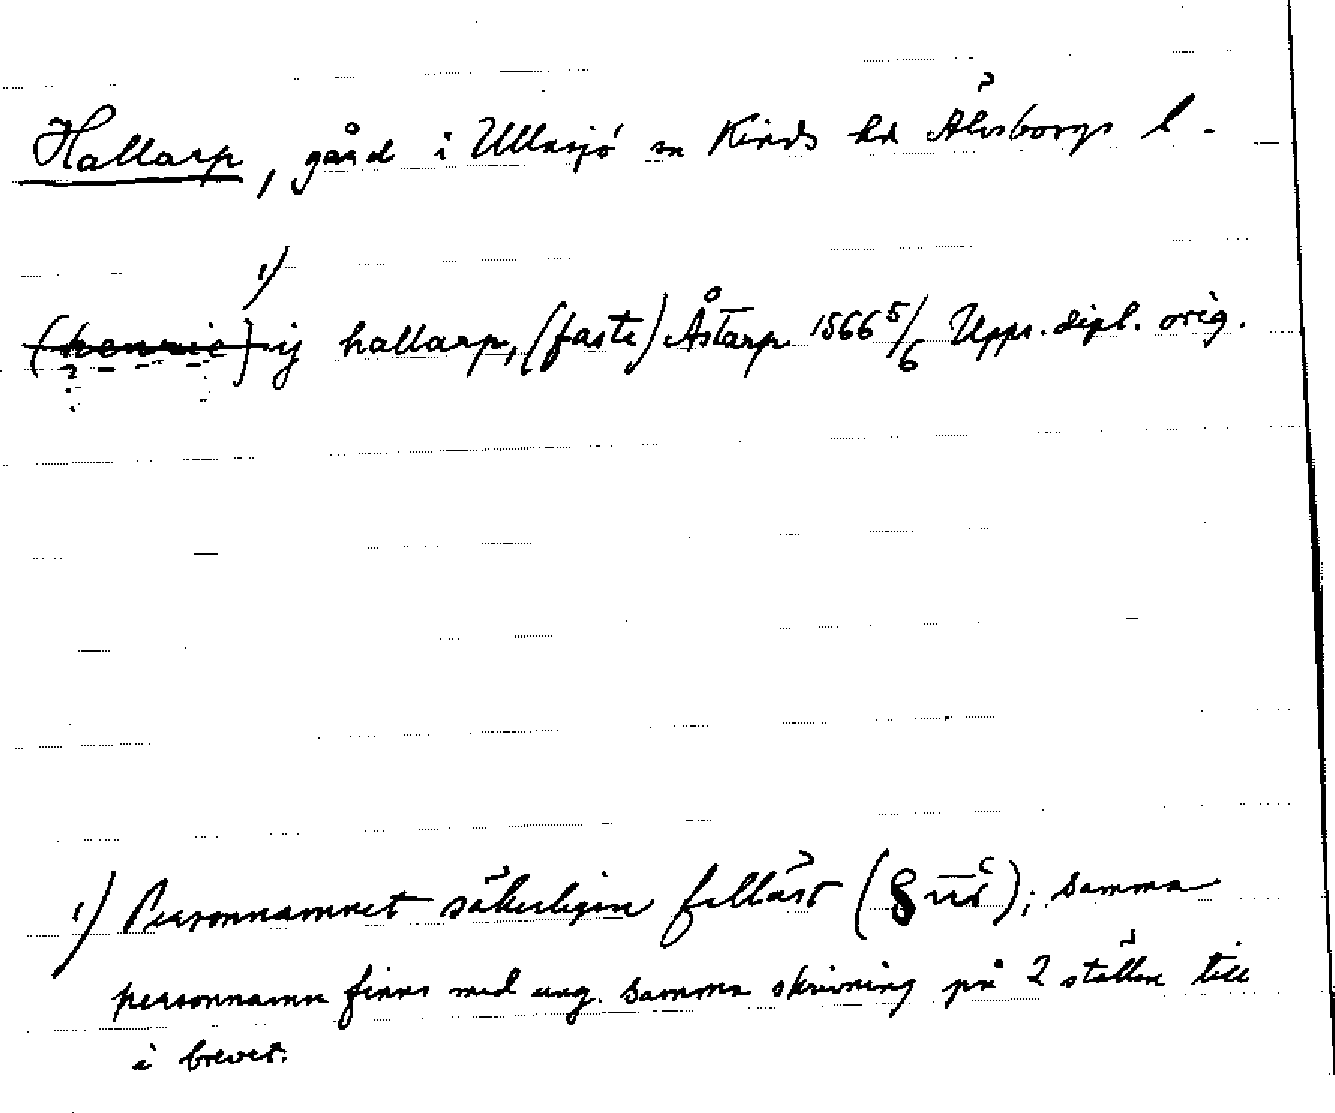 Hallarp, gård i Ullasjö sn Kinds hd Älvsborgs l.
(henric)¹⁾ ij hallarp, (faste) Åstarp 1566 5/6 Upps. dipl. orig.
1) Personnamnet säkerligen felläst (); samma
personnamn finns med ung. samma skrivning på 2 ställen till
i brevet.